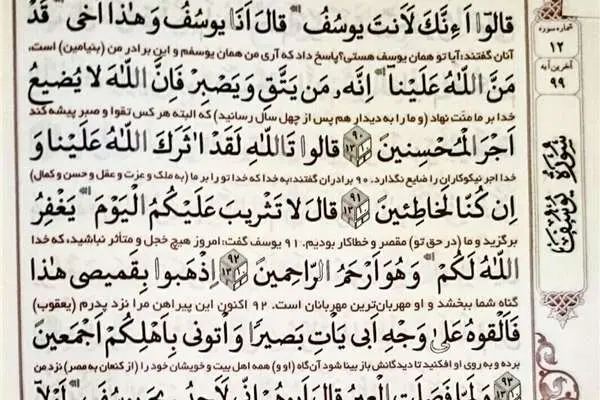 قالوا أَءِنَّكَ لَأَنتَ يوسُفُ قالَ أَنَا يوسُفُ وَهٰذا أَخی قَد
آنان گفتند: آیا تو همان یوسف هستی؟ پاسخ داد که آری من همان یوسفم و این برادر من (بنیامین) است،
مَنَّ اللّٰهُ عَلَینا إِنَّهُ مَن یَتَّقِ وَیَصبِر فَإِنَّ اللّٰهَ لا یُضیعُ
خدا بر ما منّت نهاد (و ما را به دیدار هم پس از چهل سال رسانید) که البته هر کس تقوا و صبر پیشه کند
أَجرَ المُحسِنینَ ۹۰ قالوا تَاللّٰهِ لَقَد آثَرَكَ اللّٰهُ عَلَینا وَ
خدا اجر نیکوکاران را ضایع نگذارد. ۹۰ برادران گفتند: به خدا که خدا تو را بر ما (به ملک و عزت و عقل و حسن و کمال)
إِن كُنّا لَخاطِئینَ ۹۱ قالَ لا تَثریبَ عَلَیكُمُ الیَومَ یَغفِرُ
برگزید و ما (در حق تو) مقصر و خطاکار بودیم. ۹۱ یوسف گفت: امروز هیچ خجل و متأثر نباشید، که خدا
اللّٰهُ لَكُم وَهُوَ أَرحَمُ الرّاحِمینَ ۹۲ اِذهَبوا بِقَمیصی هٰذا
گناه شما ببخشد و او مهربان‌ترین مهربانان است. ۹۲ اکنون این پیراهن مرا نزد پدرم (یعقوب)
فَأَلقوهُ عَلیٰ وَجهِ أَبی یَأتِ بَصیرًا وَأتونی بِأَهلِكُم أَجمَعینَ
برده و به روی او افکنید تا دیدگانش باز بینا شود آن‌گاه (او و) همه اهل بیت و خویشان خود را (از کنعان به مصر) نزد من
۹۳ وَلَمّا فَصَلَتِ العیرُ قالَ أَبوهُم إِنّی لَأَجِدُ ریحَ یوسُفَ لَولا
شماره سوره
۱۲
آخرین آیه
۹۹
سُورَةُ يُوسُف